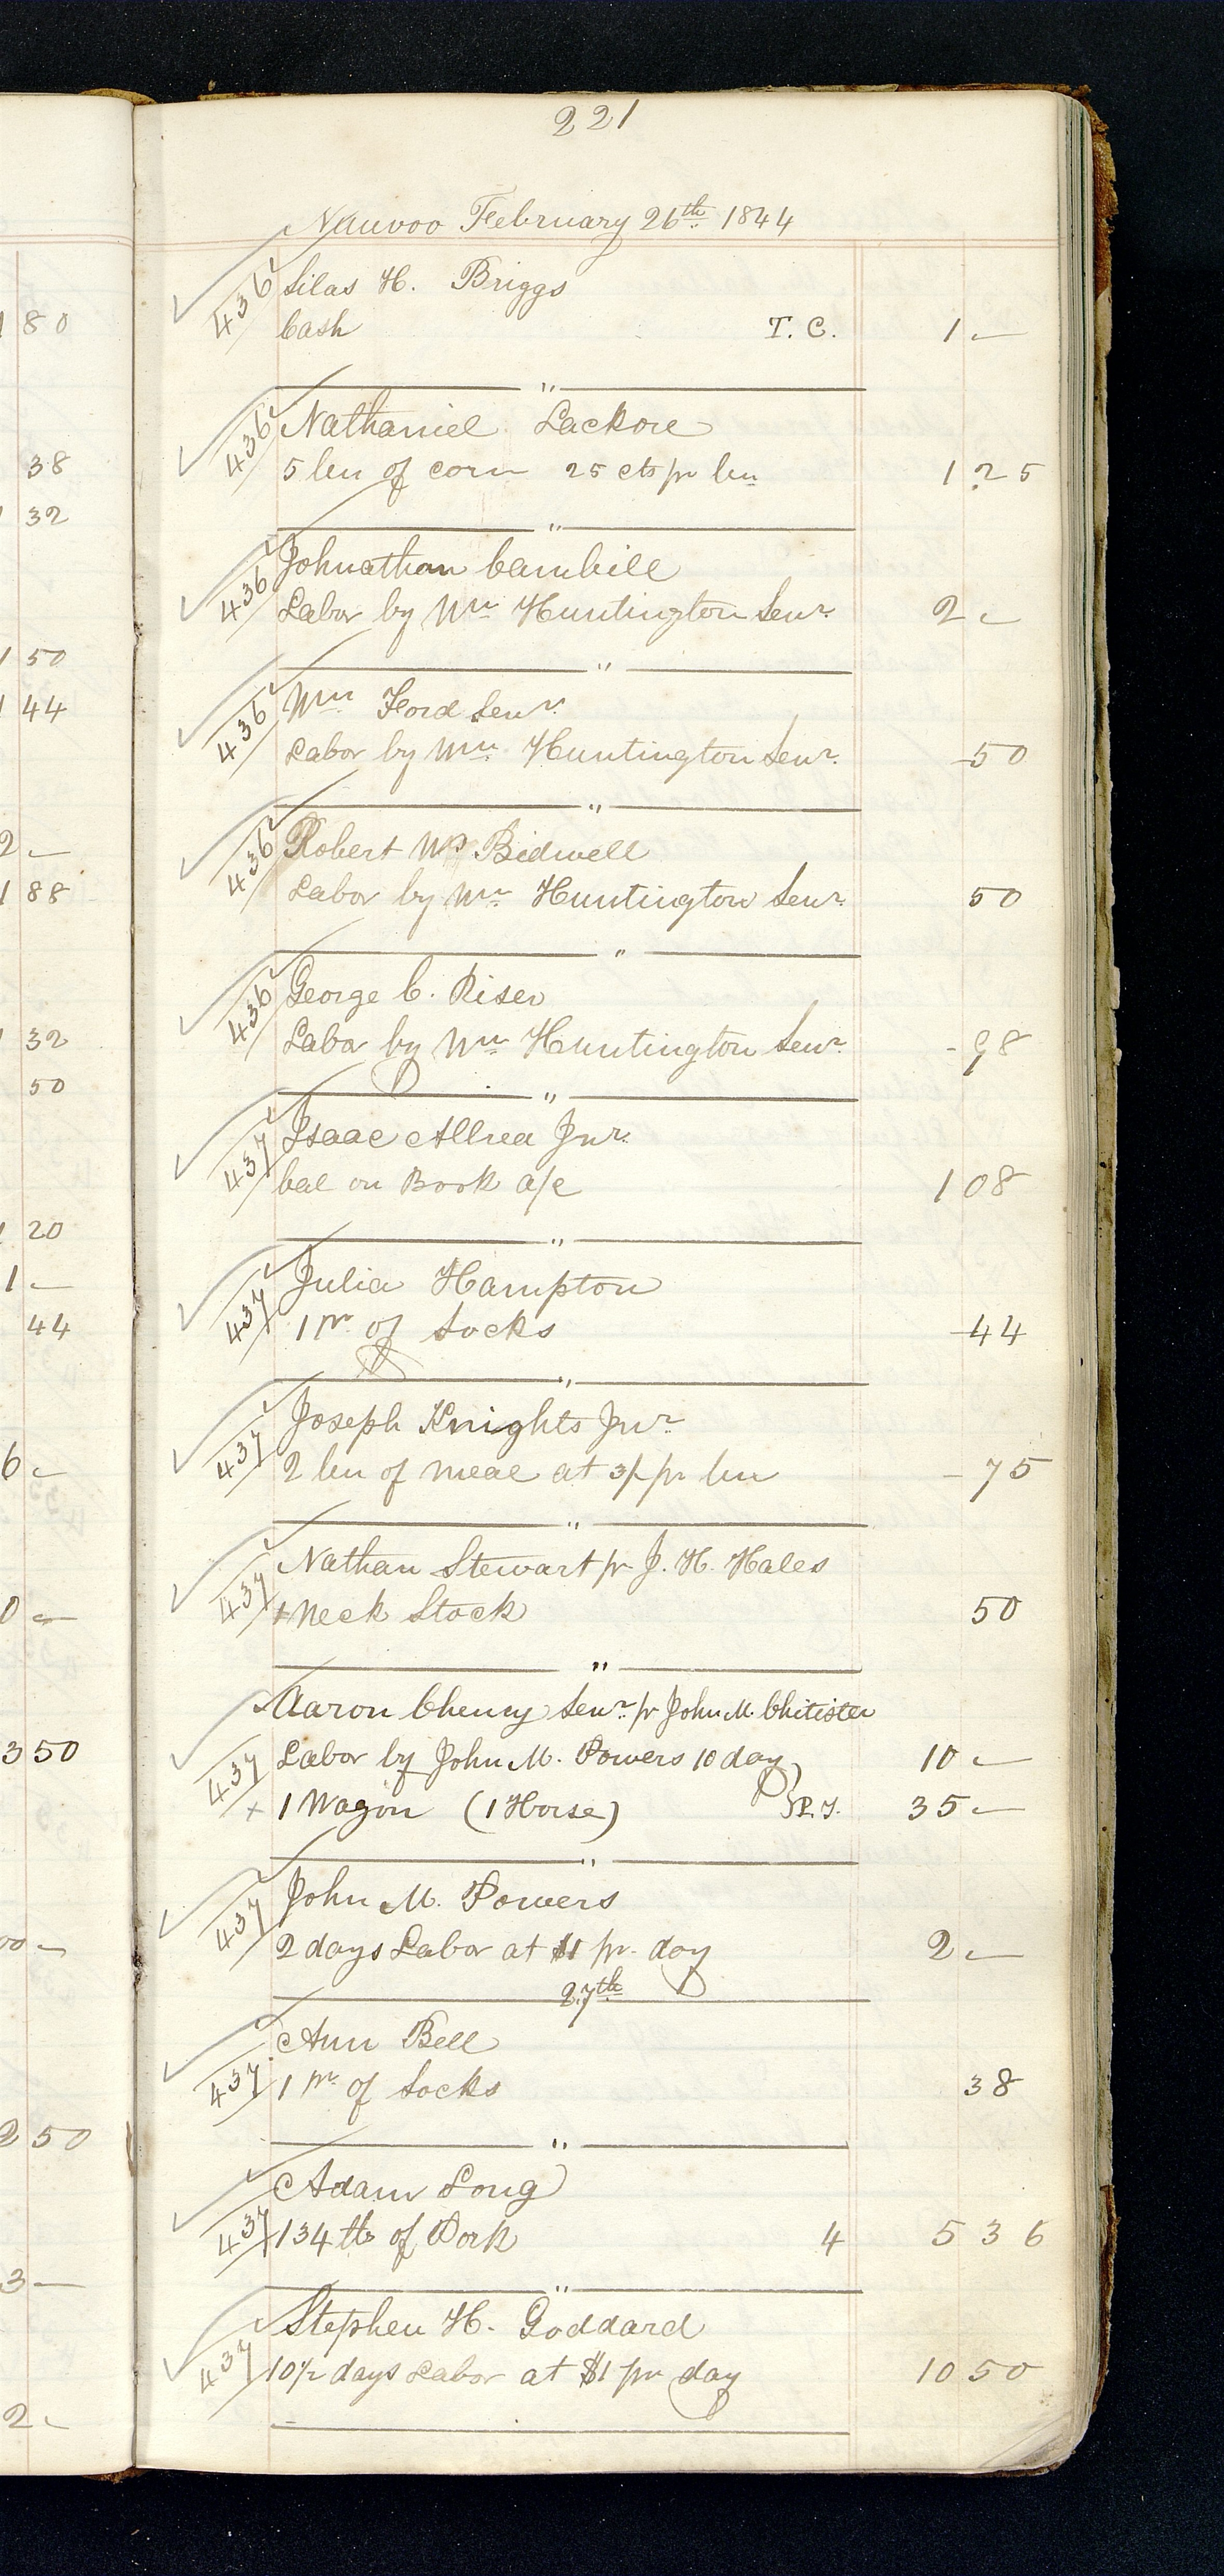 221
Nauvoo February 26th 1844
436 Silas H. Briggs
Cash T. C. 1 -
"
436 Nathaniel Lackore
5 bu of corn 25 cts pr bu 1 25
"
436 Johnathan Carnhill
Labor by Wm Huntington Senr. 2 -
"
436 Wm Ford Senr.
Labor by Wm Huntington Senr. -50
"
436 Robert W. Bidwell
Labor by Wm Huntington Senr. 50
"
436 George C. Riser
Labor by Wm Huntington Senr. - 98
"
437 Isaac Allrea Jnr.
bal on Book a/c 1 08
"
437 Julia Hampton
1 pr of Socks -44
"
437 Joseph Knights Jnr.
2 bu of meal at 3/ pr bu - 75
"
437 Nathan Stewart pr J. H. Hales
+ Neck Stock 50
"
Aaron Cheney Senr. pr John M. Chitister
437 Labor by John M. Powers 10 days 10 -
+ 1 Wagon (1 Horse) 35 -
"
437 John M. Powers
2 days Labor at $1 pr. day 2 -
27th
Ann Bell
437 1 pr of Socks 38
"
Adam Long
437 134 lbs of Pork 4 5 36
"
Stephen H. Goddard
437 10 1/2 days Labor at $1 pr day 10 50
1 80
38
1 32
1 50
1 44
2 -
1 88
1 32
50
1 20
1 -
44
6 -
0 -
3 50
00 -
2 50
3 -
2 -